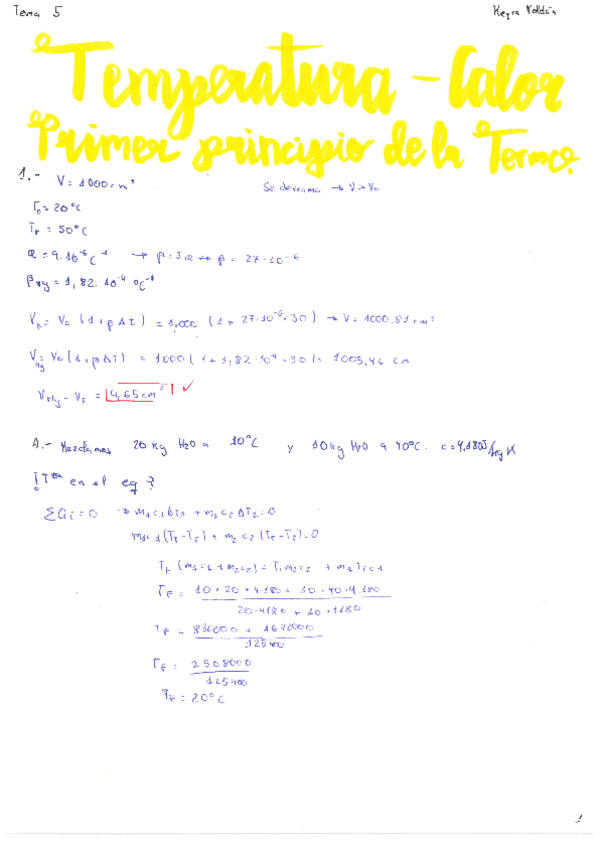 Tema 5
Keyra Roldán
Temperatura - Calor
Primer principio de la Termo.
1.- V = 1000 cm³
Se derrama → V > V₀
T₀ = 20°C
T_F = 50°C
α = 9·10⁻⁶ C⁻¹ → β = 3α ↔ β = 27·10⁻⁶
β_Hg = 1,82·10⁻⁴ °C⁻¹
V_F = V₀ (1+βΔt) = 1,000 (1 + 27·10⁻⁶·30) → V = 1000,81 cm³
V_Hg = V₀(1+βΔT) = 1000(1+1,82·10⁻⁴·30) = 1005,46 cm
V_Hg - V_F = 4,65 cm³ ✓
A.- Mezclamos 20 kg H₂O a 10°C y 10 kg H₂O a 40°C. c = 4,180J/kg K
¿T en el eq?
ΣQi = 0 → m₁c₁Δt₁ + m₂c₂ΔT₂ = 0
m₁c₁(T_F - T_i) + m₂c₂(T_F - T_i) = 0
T_F (m₁c₁ + m₂c₂) = T_i m₂c₂ + m₁T_i c₁
T_F = 10·20·4180 + 10·40·4.180
20·4180 + 10·4180
T_F = 836000 + 1672000
125400
T_F = 2508000
125400
T_F = 20°C
1